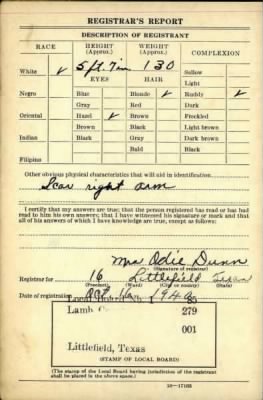 REGISTRAR'S REPORT
DESCRIPTION OF REGISTRANT
RACE HEIGHT (Approx.) WEIGHT (Approx.) COMPLEXION
White ✓ 5 ft. 7 in 130 Sallow
EYES HAIR Light
Negro Blue Blonde ✓ Ruddy ✓
Gray Red Dark
Oriental Hazel ✓ Brown Freckled
Brown Black Light brown
Indian Black Gray Dark brown
Bald Black
Filipino
Other obvious physical characteristics that will aid in identification
Scar right arm
I certify that my answers are true; that the person registered has read or has had
read to him his own answers; that I have witnessed his signature or mark and that
all of his answers of which I have knowledge are true, except as follows:
Mrs Odie Dunn
(Signature of registrar)
Registrar for 16 Littlefield Texas
(Precinct) (Ward) (City or county) (State)
Date of registration Oct 16 1940
85
Lamb 279
001
Littlefield, Texas
(STAMP OF LOCAL BOARD)
(The stamp of the Local Board having jurisdiction of the registrant
shall be placed in the above space.)